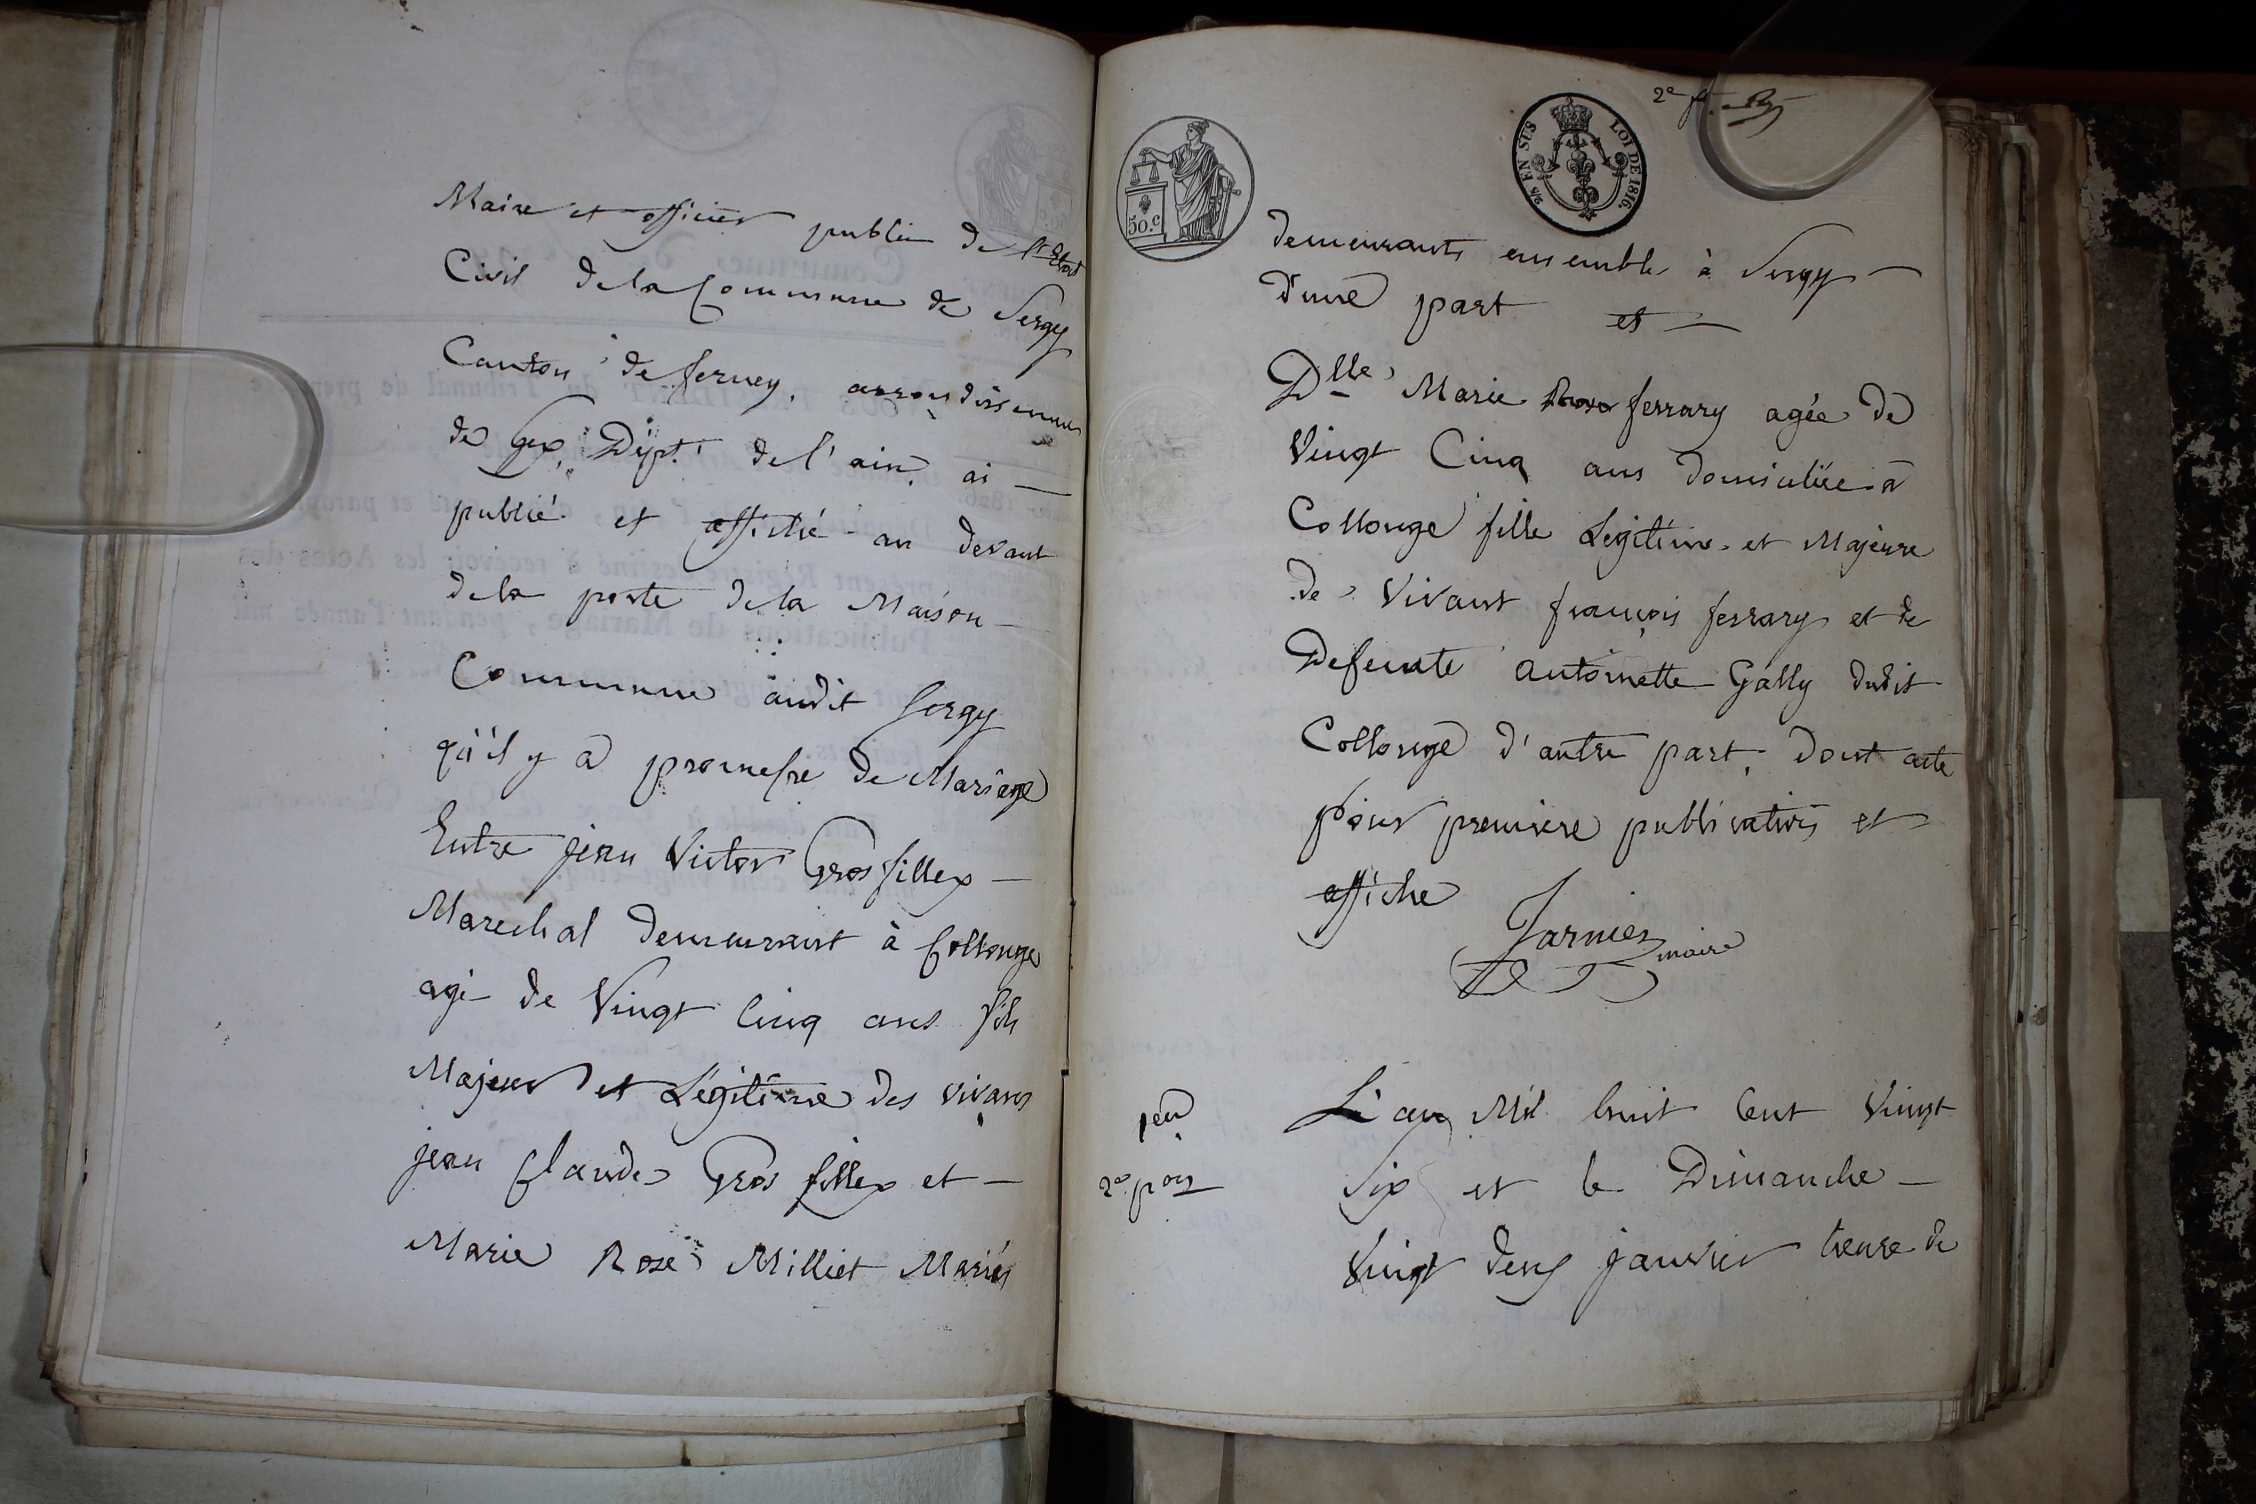 Maire et officier public de l'Etat
Civil de la Commune de Sergy
Canton de ferney, arrondissement
de Gex, Dépt. de l'ain, ai —
publié et affiché au devant
de la porte de la Maison —
Commune audit Sergy
qu'il y a promesse de Mariage
Entre jean Victor Grosfillex —
Marechal demeurant à Collonge
agé de Vingt Cinq ans fils
Majeur et Légitime des vivans
jean Claude Gros fillex et —
Marie Rose Milliet Mariés
50.c
EN SUS LOI DE 1816.
2e
demeurants ensemble à Sergy —
d'une part et —
Dlle Marie ferrary agée de
Vingt Cinq ans domiciliée à
Collonge fille Légitime et Majeure
de Vivant françois ferrary et de
Defeunte antoinette Gally dudit
Collonge d'autre part, dont acte
pour premiere publication et
affiche
Jarnier maire
2e pon
L'an Mil huit Cent Vingt
Six et le Dimanche —
Vingt deux janvier heure de